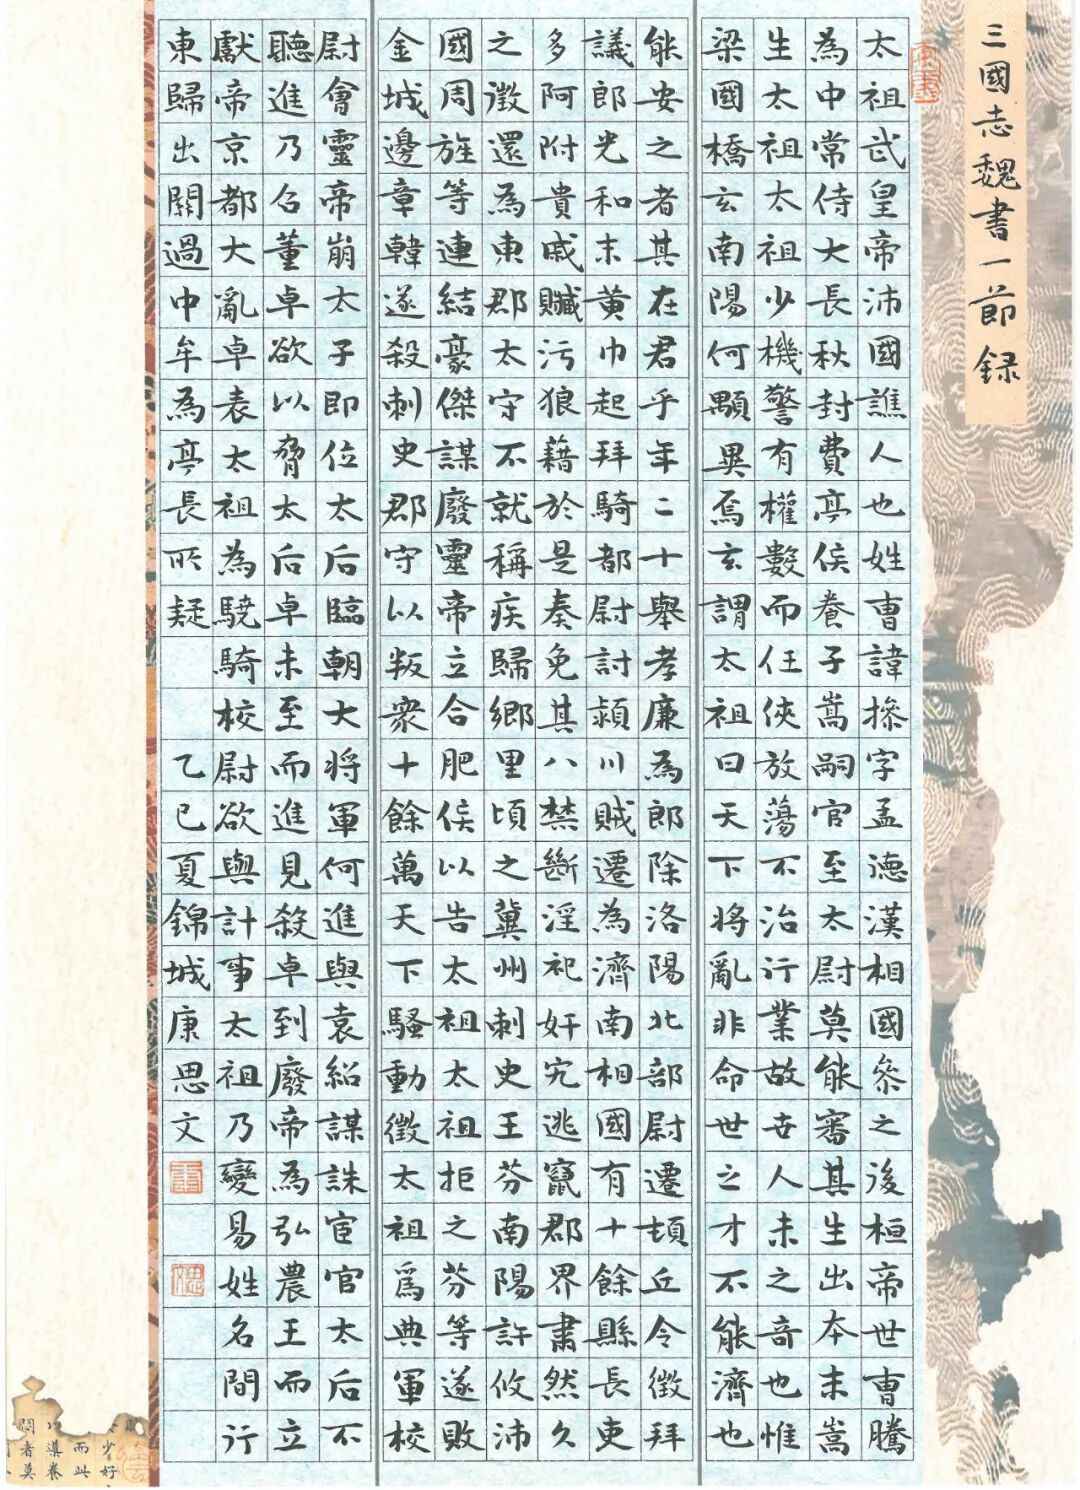 三國志魏書一節録
太祖武皇帝沛國譙人也姓曹諱操字孟德漢相國參之後桓帝世曹騰
為中常侍大長秋封費亭侯養子嵩嗣官至太尉莫能審其生出本末嵩
生太祖太祖少機警有權數而任俠放蕩不治行業故世人未之奇也惟
梁國橋玄南陽何顒異焉玄謂太祖曰天下將亂非命世之才不能濟也
能安之者其在君乎年二十舉孝廉為郎除洛陽北部尉遷頓丘令徵拜
議郎光和末黃巾起拜騎都尉討潁川賊遷為濟南相國有十餘縣長吏
多阿附貴戚贓污狼藉於是奏免其八禁斷淫祀奸宄逃竄郡界肅然久
之徵還為東郡太守不就稱疾歸鄉里頃之冀州刺史王芬南陽許攸沛
國周旌等連結豪傑謀廢靈帝立合肥侯以告太祖太祖拒之芬等遂敗
金城邊章韓遂殺刺史郡守以叛衆十餘萬天下騷動徵太祖爲典軍校
尉會靈帝崩太子即位太后臨朝大將軍何進與袁紹謀誅宦官太后不
聽進乃召董卓欲以脅太后卓未至而進見殺卓到廢帝為弘農王而立
獻帝京都大亂卓表太祖為驍騎校尉欲與計事太祖乃變易姓名間行
東歸出關過中牟為亭長所疑
乙巳夏錦城康思文
少好
而此
導養
者莫